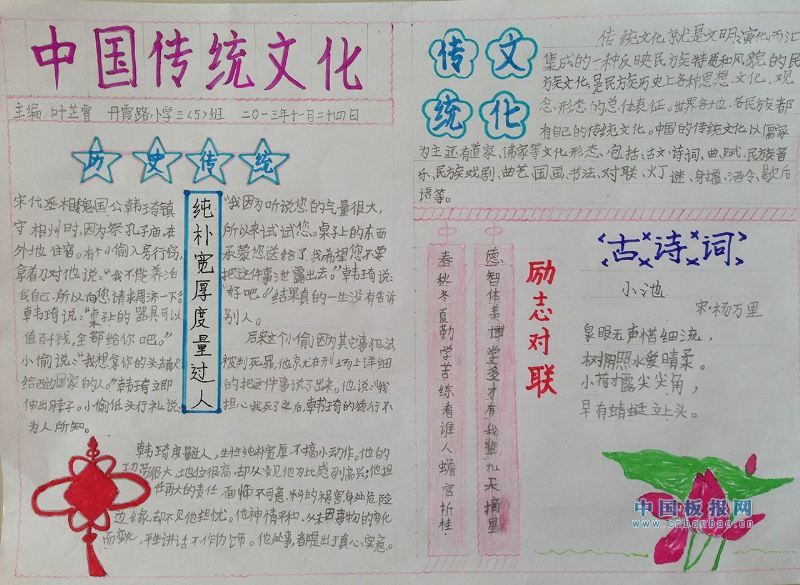 中国传统文化
主编:叶芷睿 丹霞路小学三〈5〉班 二〇一三年十一月二十四日
历史传统
纯朴宽厚度量过人
宋代丞相魏国公韩琦镇
守相州时,因为祭孔子庙在
外地住宿。有个小偷入房行窃,
拿着刀对他说:“我不能养活
我自己,所以向您请求周济一下。”
韩琦说:“桌上的器具可以
值百千钱,全都给你吧。”
小偷说:“我想拿你的头去献
给西边国家的人。”韩琦立即
伸出脖子。小偷低头行礼说:
“我因为听说您的气量很大,
所以来试试您。桌子上的东西
承蒙您送给了我,希望您不要
把这件事泄露出去。”韩琦说:
“好吧。”结果真的一生没有告诉
别人。
后来这个小偷,因为其它事犯法
被判死罪,他竟在刑场上详细
的把这件事说了出来。他说:“我
担心我死了之后,韩琦的德行不
为人所知。
韩琦度量过人,生性纯朴宽厚,不搞小动作。他的
功劳很大,地位很高,却从没见他为此感到高兴;他担
任再大的责任,面临不可意料的祸害,身处危险
边缘,却不见他担忧。他神情平和,从未因事物的变化
而变化,平生讲话不作伪饰。他处事都是出于真心实意。
传文
统化
传统文化就是文明演化而汇
集成的一种反映民族特质和风貌的民
族文化,是民族历史上各种思想、文化、观
念、形态的总体表征。世界各地,各民族都
有自己的传统文化。中国的传统文化以儒家
为主还有道家、佛家等文化形态,包括:古文、诗词、曲、赋、民族音
乐、民族戏剧、曲艺、国画、书法、对联、灯谜、射覆、酒令、歇后
语等。
励志对联
德智体美博学多才有我辈九天摘星
春秋冬夏勤学苦练看谁人蟾宫折桂
古诗词
小池
宋·杨万里
泉眼无声惜细流,
树阴照水爱晴柔。
小荷才露尖尖角,
早有蜻蜓立上头。
中国板报网
www.cnbanbao.cn